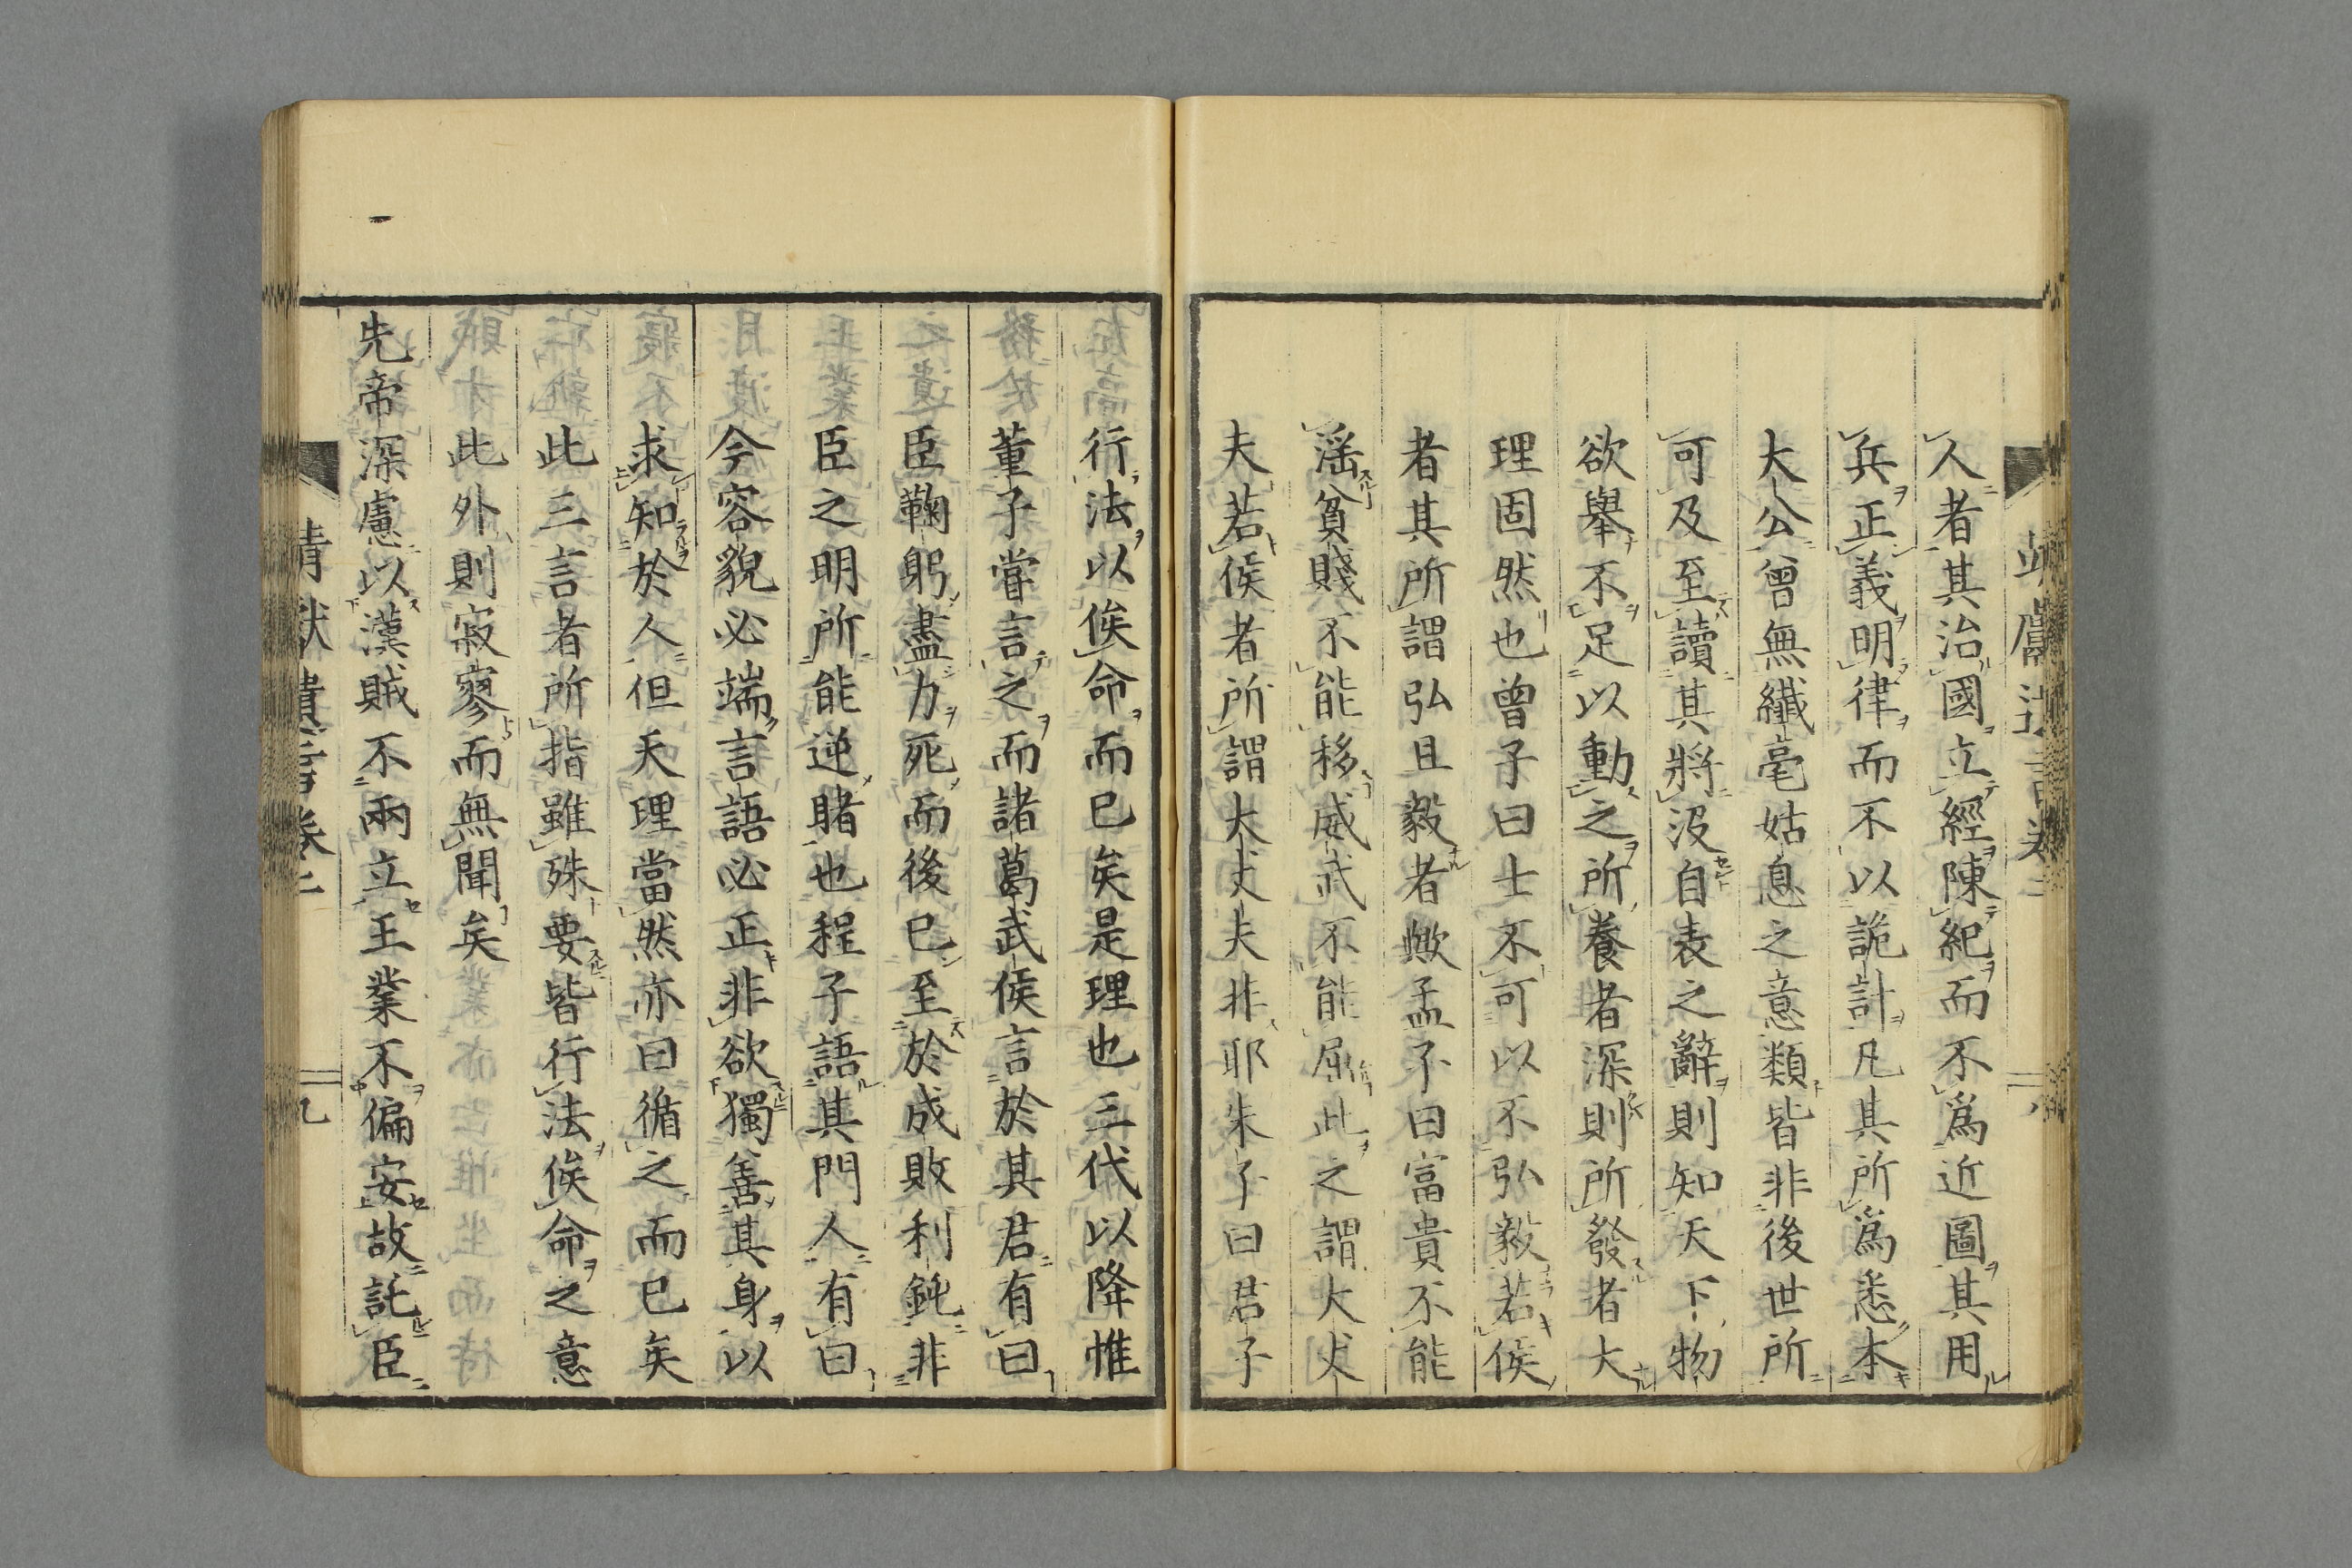 人者其治國立經陳紀而不爲近圖其用
兵正義明律而不以詭計凡其所爲悉本
大公曾無纎毫姑息之意類皆非後世所
可及至讀其將沒自表之辭則知天下物
欲舉不足以動之所養者深則所發者大
理固然也曾子曰士不可以不弘毅若侯
者其所謂弘且毅者歟孟子曰富貴不能
淫貧賤不能移威武不能屈此之謂大丈
夫若侯者所謂大丈夫非耶朱子曰君子
行法以俟命而已矣是理也三代以降惟
董子嘗言之而諸葛武侯言於其君有曰
臣鞠躬盡力死而後已至於成敗利鈍非
臣之明所能逆睹也程子語其門人有曰
今容貌必端言語必正非欲獨善其身以
求知於人但天理當然亦曰循之而已矣
此三言者所指雖殊要皆行法俟命之意
此外則寂寥而無聞矣
先帝深慮以漢賊不兩立王業不偏安故託臣
靖獻遺言卷二 九